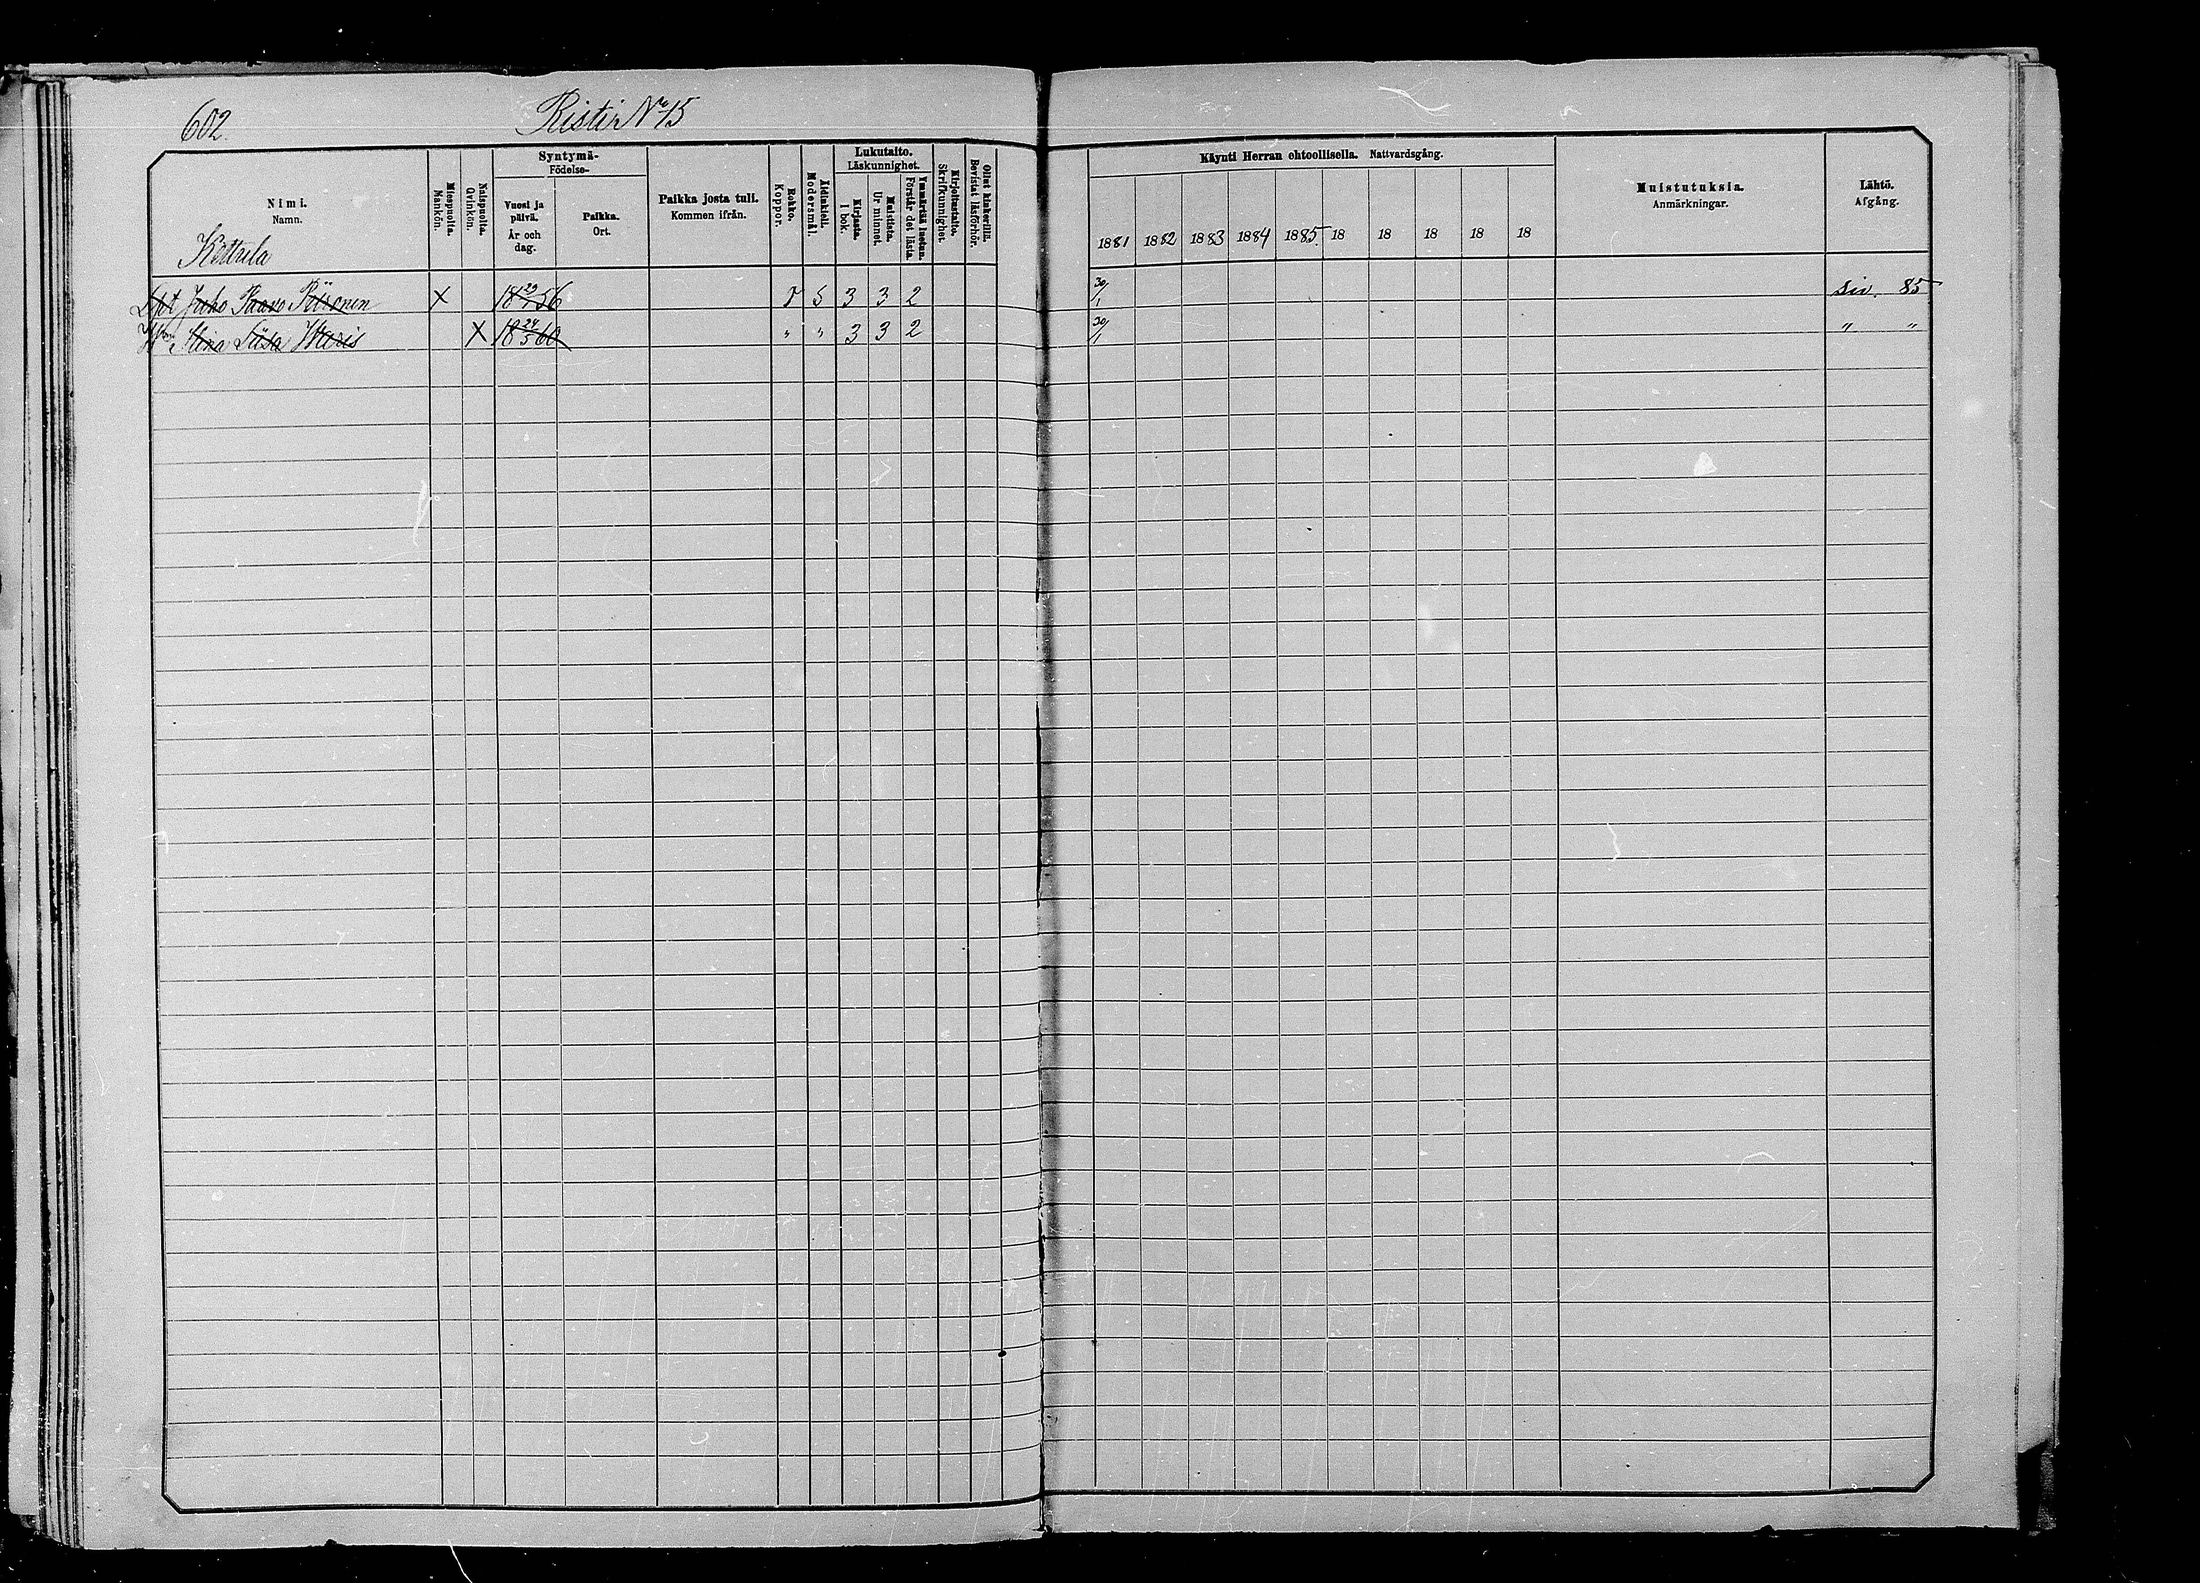 602. Ristin No 15
Nimi.
Namn.
Miespuolta.
Mankön.
Naispuolta.
Qvinkön.
Syntymä-
Födelse-
Vuosi ja
päivä.
År och
dag.
Paikka.
Ort.
Paikka josta tuli.
Kommen ifrån.
Rokko.
Koppor.
Äidinkieli.
Modersmål.
Lukutaito.
Läskunnighet.
Kirjasta.
I bok.
Muistista.
Ur minnet.
Ymmärtää luetun.
Förstår det lästa.
Kirjoitustaito.
Skrifkunnighet.
Ollut kinkerillä.
Bevistat läsförhör.
Käynti Herran ehtoollisella. Nattvardsgång.
1881 1882 1883 1884 1885. 18 18 18 18 18
Muistutuksia.
Anmärkningar.
Lähtö.
Afgång.
Kettula
Juho Paavo X 18 29 56 S 3 3 2 30/1 siv. 85
Stina Liisa X 18 24/5 60 " " 3 3 2 30/1 " "